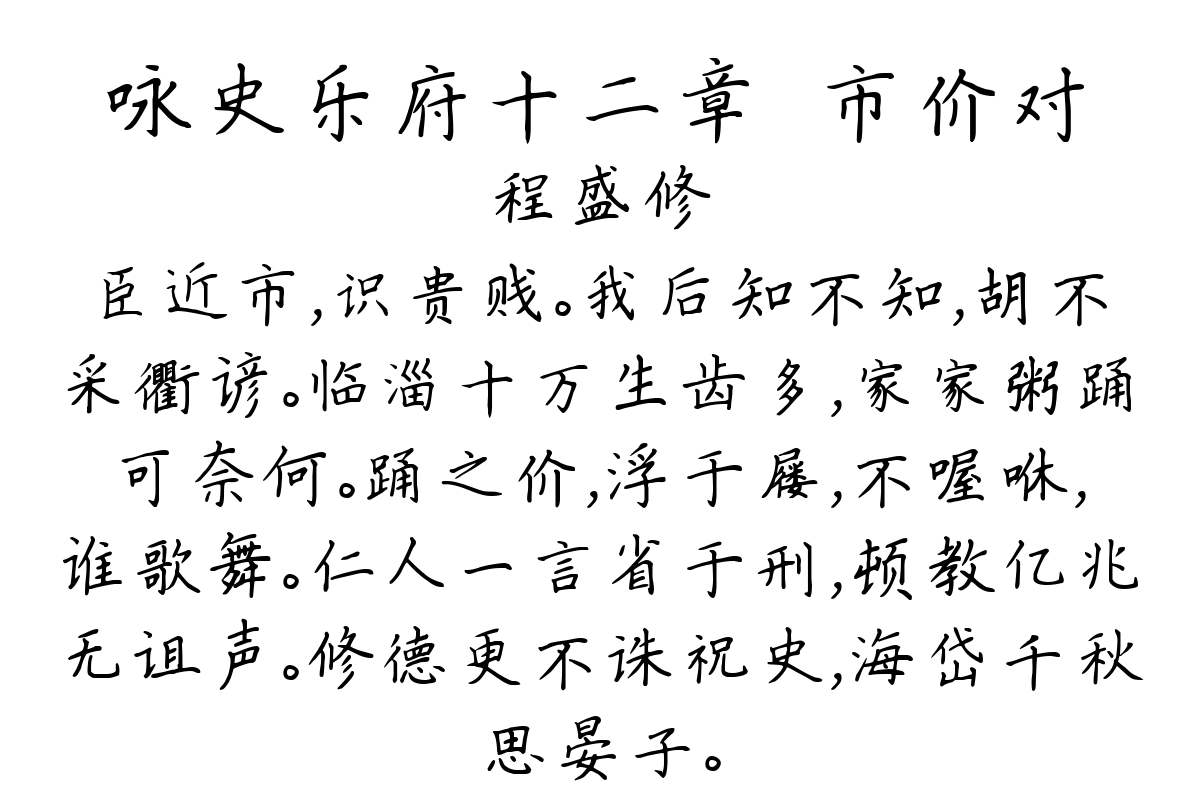 咏史乐府十二章 市价对
程盛修
臣近市,识贵贱。我后知不知,胡不
采衢谚。临淄十万生齿多,家家粥踊
可奈何。踊之价,浮于屦,不喔咻,
谁歌舞。仁人一言省于刑,顿教亿兆
无诅声。修德更不诛祝史,海岱千秋
思晏子。